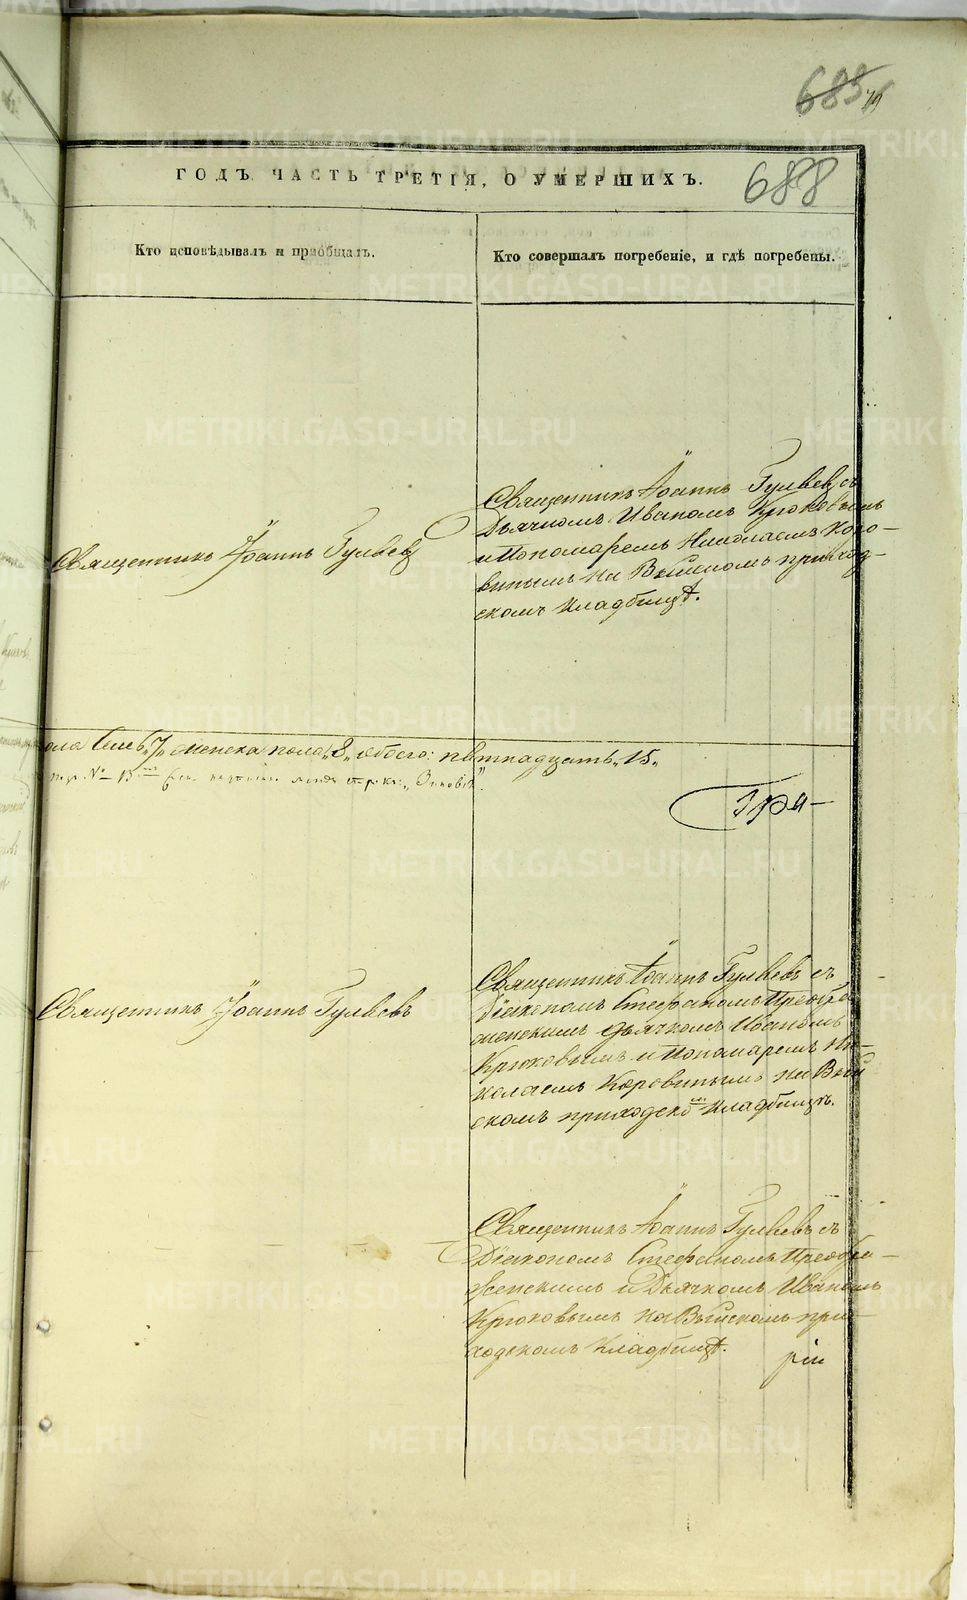 685
688
ГОДЪ ЧАСТЬ ТРЕТІЯ, О УМЕРШИХЪ.
Кто исповѣдывалъ и приобщалъ.
Кто совершалъ погребеніе, и гдѣ погребены.
Священникъ Іоаннъ Гуляевъ
Священникъ Іоаннъ Гуляевъ съ
Дьячкомъ Иваномъ Крюковымъ
и Пономаремъ Николаемъ Коро-
винымъ на Выйскомъ приход-
скомъ кладбищѣ.
пола Семь „7„ женска пола „8„ обоего: пятнадцать „15„
Гри-
Священникъ Іоаннъ Гуляевъ
Священникъ Іоаннъ Гуляевъ съ
Діакономъ Стефаномъ Преобра
женскимъ дьячкомъ Иваномъ
Крюковымъ и Пономаремъ Ни-
колаемъ Коровинымъ на Вый
скомъ приходско мъ кладбищѣ.
Священникъ Іоаннъ Гуляевъ съ
Діакономъ Стефаномъ Преобра-
женскимъ и Дьячкомъ Иваномъ
Крюковымъ на Выйскомъ при-
ходскомъ кладбищѣ.
рій
METRIKI.GASO-URAL.RU